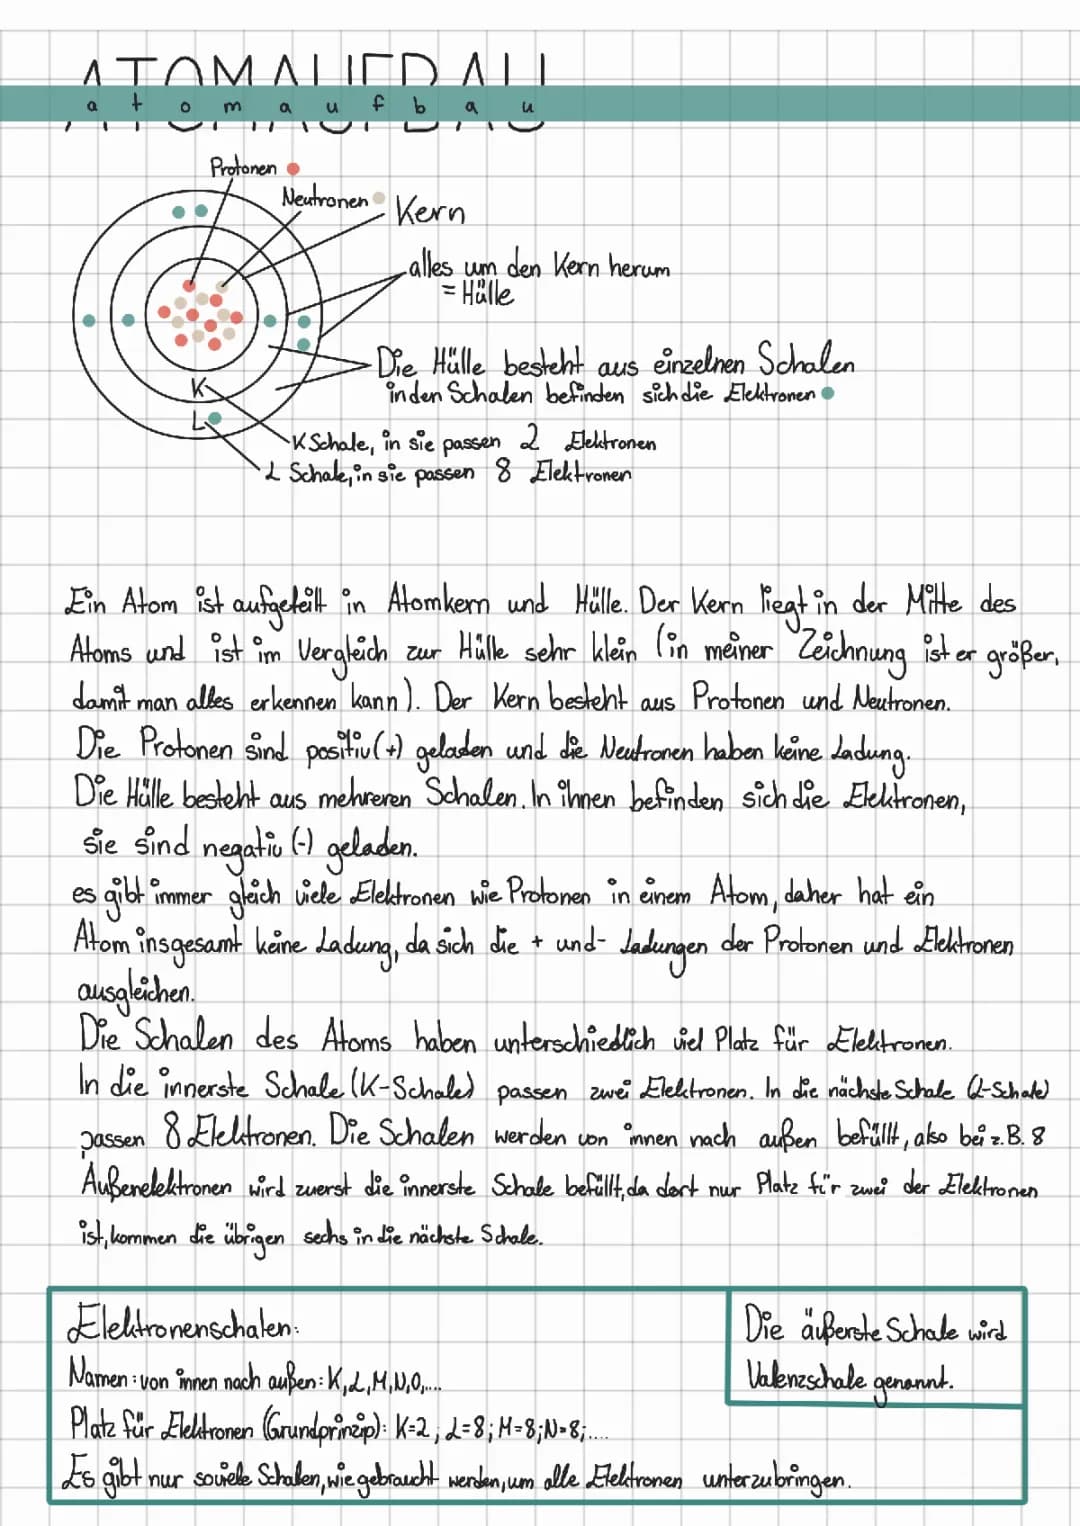 ATOMAUFBAU
atomaufbau
Protonen
Neutronen
Kern
alles um den Kern herum
= Hülle
Die Hülle besteht aus einzelnen Schalen
in den Schalen befinden sich die Elektronen
K
L
K Schale, in sie passen 2 Elektronen
L Schale, in sie passen 8 Elektronen
Ein Atom ist aufgeteilt in Atomkern und Hülle. Der Kern liegt in der Mitte des
Atoms und ist im Vergleich zur Hülle sehr klein (in meiner Zeichnung ist er größer,
damit man alles erkennen kann). Der Kern besteht aus Protonen und Neutronen.
Die Protonen sind positiv (+) geladen und die Neutronen haben keine Ladung.
Die Hülle besteht aus mehreren Schalen. In ihnen befinden sich die Elektronen,
sie sind negativ (-) geladen.
es gibt immer gleich viele Elektronen wie Protonen in einem Atom, daher hat ein
Atom insgesamt keine Ladung, da sich die + und - Ladungen der Protonen und Elektronen
ausgleichen.
Die Schalen des Atoms haben unterschiedlich viel Platz für Elektronen.
In die innerste Schale (K-Schale) passen zwei Elektronen. In die nächste Schale (L-Schale)
passen 8 Elektronen. Die Schalen werden von innen nach außen befüllt, also bei z.B. 8
Außenelektronen wird zuerst die innerste Schale befüllt, da dort nur Platz für zwei der Elektronen
ist, kommen die übrigen sechs in die nächste Schale.
Elektronenschalen:
Namen: von innen nach außen: K, L, M, N, O,....
Platz für Elektronen (Grundprinzip): K=2; L=8; M=8; N=8;....
Es gibt nur soviele Schalen, wie gebraucht werden, um alle Elektronen unterzubringen.
Die äußerste Schale wird
Valenzschale genannt.